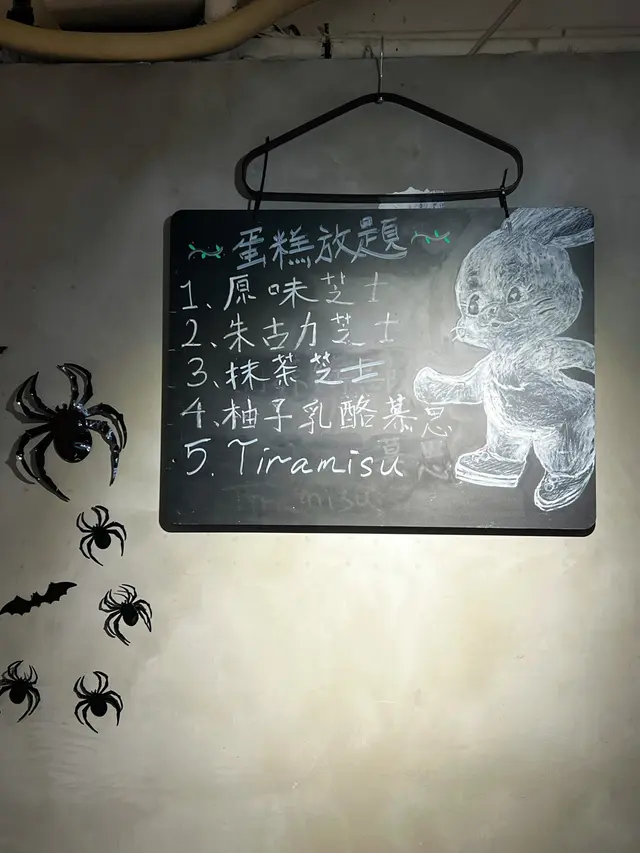 蛋糕放題
1、原味芝士
2、朱古力芝士
3、抹茶芝士
4、柚子乳酪慕思
5. Tiramisu